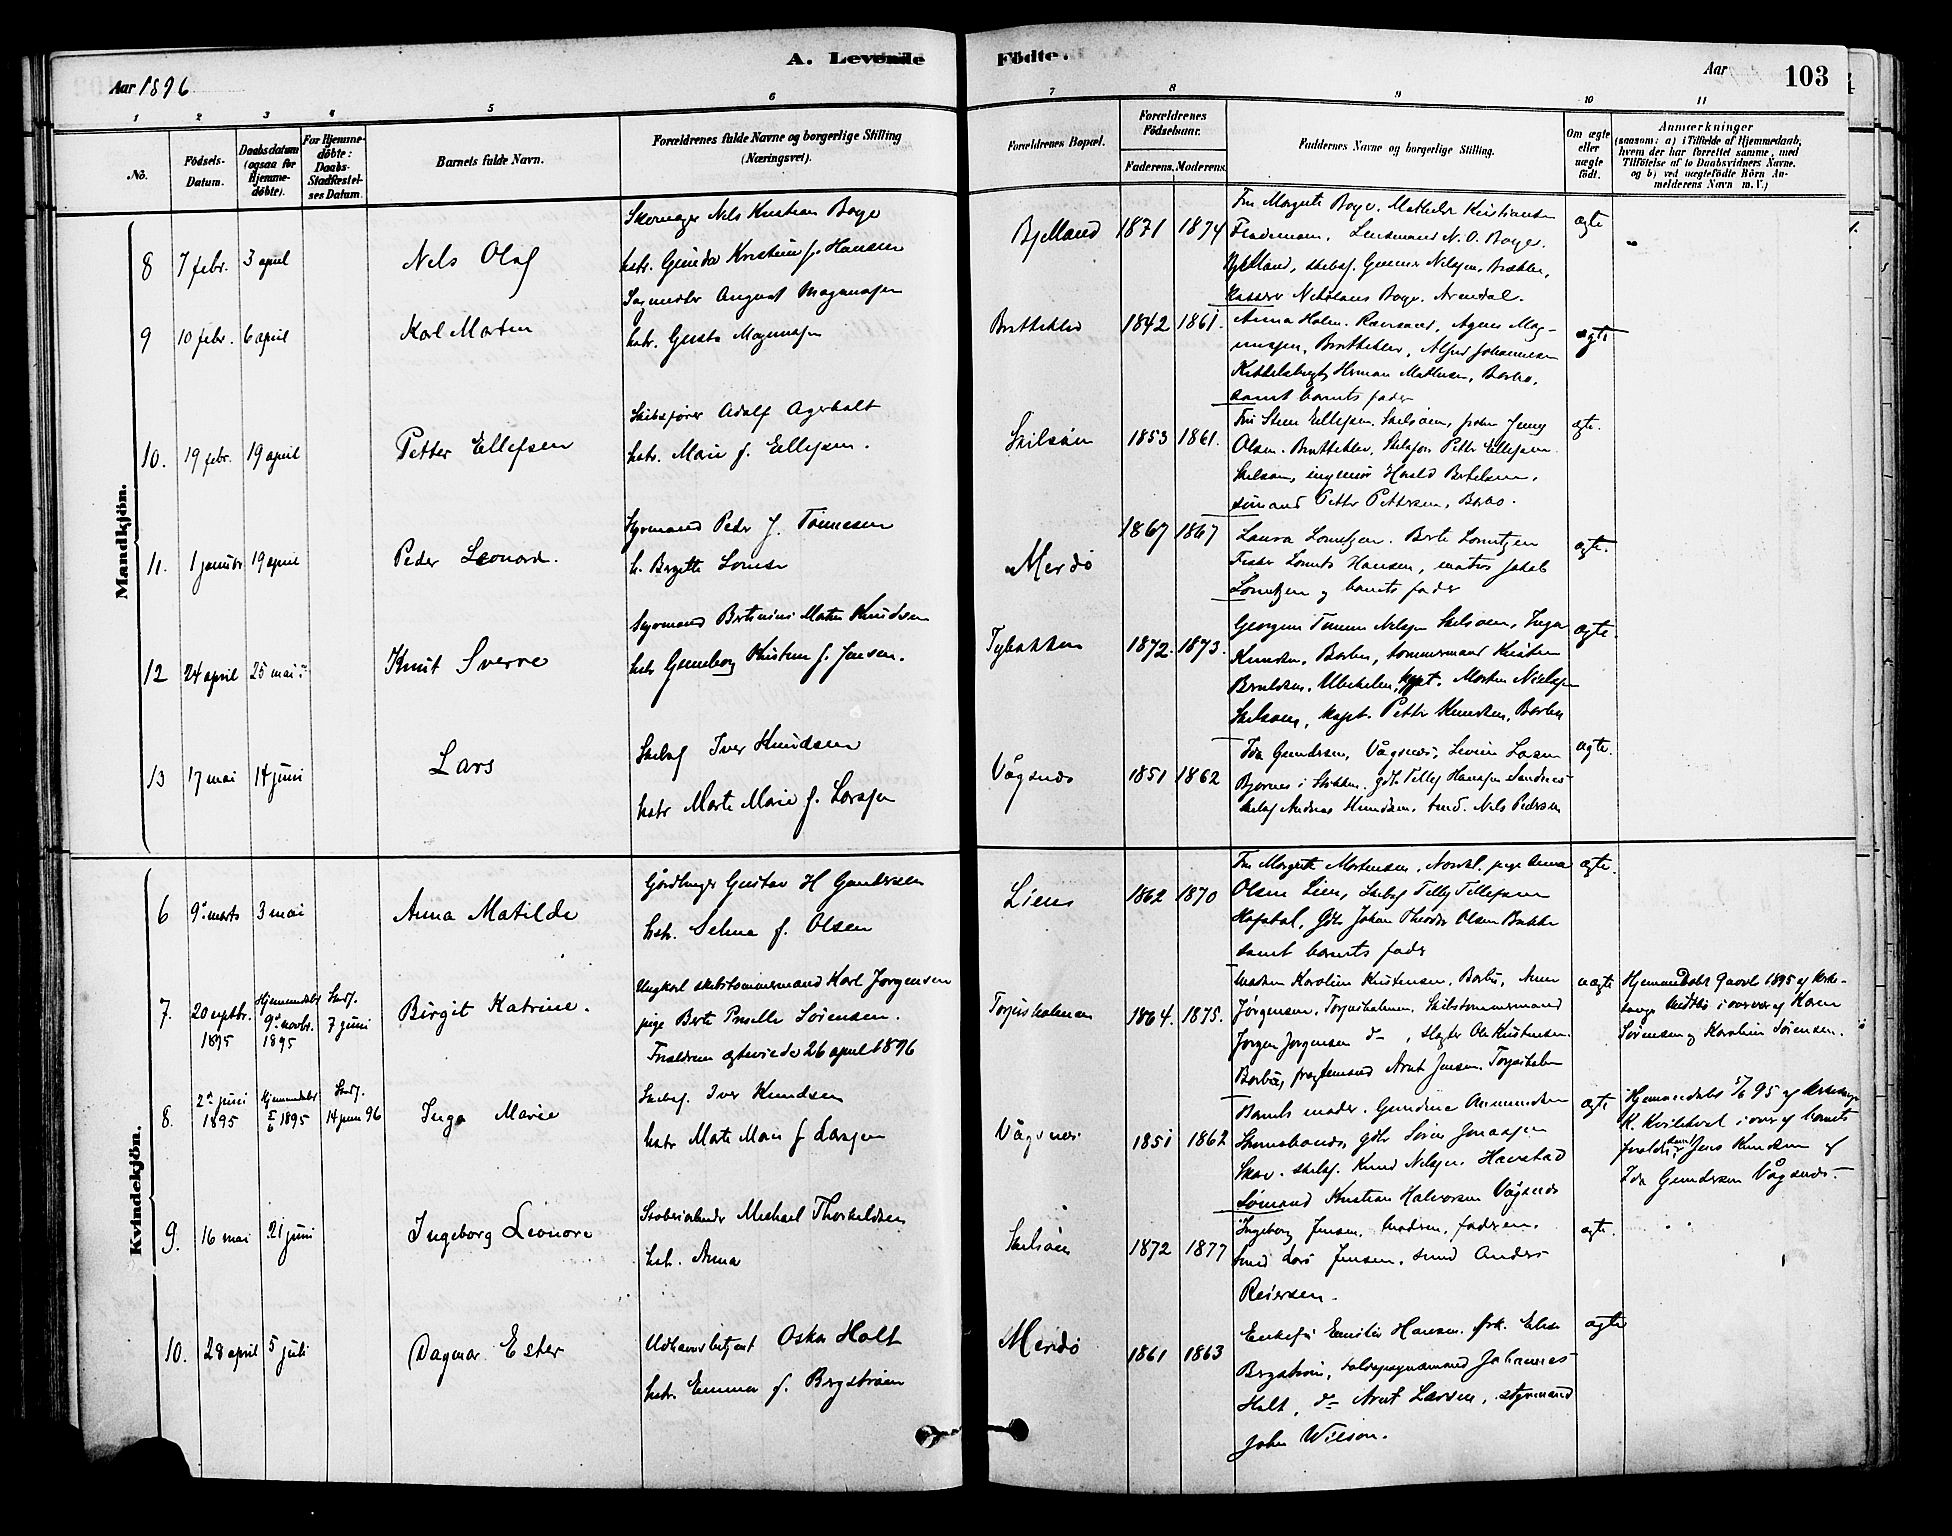 Aar 1896
A. Levende Födte.
Aar
103
1 2 3 4 5 6 7 8 9 10 11
No.
Födsels-Datum.
Daabsdatum (ogsaa for Hjemmedöbte).
For Hjemmedöbte: Daabs-Stadfæstelses Datum.
Barnets fulde Navn.
Forældrenes fulde Navne og borgerlige Stilling (Næringsvei).
Forældrenes Bopæl.
Forældrenes Födselsaar.
Faderens. Moderens.
Faddernes Navne og borgerlige Stilling.
Om ægte eller uægte födt.
Anmærkninger
(saasom: a) i Tilfælde af Hjemmedaab, hvem der har forrettet samme, med Tilföielse af to Daabsvidners Navne. og b) ved uægtefödte Börn Anmelderens Navn m. V.)
Mandkjön.
8 7 febr. 3 april
Nels Olaf
Skomager Nels Kristian Boye
hstr. Gunda Kristine f. Hansen
Bjelland 1871 1874
Fru Margrete Boye. Mathilde Kristiansen
Lensmand N. O. Boye.
Bjelland, skibsf. Gunner Nilsen, Brække,
Kasserer Nikolaus Boye. Arendal.
ægte
9 10 febr. 6 april
Karl Morten
Sagmester August Magnussen
hstr. Gusta Magnusen
Bratteklev 1842 1861.
Anna Holm. Revesand, Agnes Mag-
nusen, Bratteklev, Alfred Johannesen
Kittelsbugt, Herman Mathisen, Barbo,
samt barnets fader
ægte
10. 19 febr. 19 april
Petter Ellefsen
Skibsfører Adolf Agerholt
hstr. Marie f. Ellefsen.
Skilsøen 1853 1861.
Olsen. Bratteklev, Skibsfør Petter Ellefsen
Skilsøen, ingeniør Harald Bertelsen,
sømand Petter Pettersen, Barbo.
ægte.
11. 1 januar 19 april
Peder Leonard.
Styrmand Peder J. Tønnesen
h. Birgitte Lovise
Merdø 1867 1867
Laura Lorentzen. Berte Lorentzen
Fisker Lorents Hansen, matros Jakob
Lorentzen og barnets fader
ægte.
12 24 april 25 mai
Knut Sverre
Styrmand Bertinius Martin Knudsen
hstr Gunnborg Kristine f. Jensen.
Tybakken 1872. 1873.
Georgine Tomine Nilsen Skilsøen, Inga
Knudsen, Barbo, tømmermand Kristen
kapt. Morten Nielsen
Skilsøen, kapt. Petter Knudsen, Barbo
ægte.
13 17 mai 14 juni
Lars
Skibsf Iver Knudsen
hstr Marte Marie f. Larsen
Vågsnes 1851 1862
Ida Gundersen, Vågsnes, Lovise Larsen
Bjørnes i Stokken. gdr. Tellef Hansen Sandnes
skibsf Andreas Knudsen, tmd. Nils Pedersen
ægte.
Kvindekjön.
6 9 marts 3 mai
Anna Matilde
Gjordbruger Gustav H Gundersen
hstr. Selma f. Olsen
Liene 1862 1870
Fru Margrete Mortensen, pige Anna
Olsen Lien, Skibsf Tellef Tellefsen
gdr Johan Theodor Olsen Bakke
samt barnets fader
ægte.
7. 20 septbr. 1895
Hjemmedøbt 9 novbr. 1895
Stadf. 7 juni
Birgit Katrine.
Ungkarl skibstømmermand Karl Jørgensen
pige Berte Pernille Sørensen.
Forældrene ægteviede 26 april 1896
Torjusholmen 1864. 1875.
Madam Karoline Kristensen, Barbo, Anna
Jørgensen, Torjusholmen. Skibstømmermand
Jørgen Jørgensen do, slagter Ole Kristensen
Barbo, fragtemand Arnt Jensen. Torjusholmen
uægte
Hjemmedøbt 9 novb 1895 af kirke-
sanger i overvær af Karen
Sørensen og Karoline Sørensen.
8. 2 juni 1895
Hjemmedøbt 1895
Stadf. 14 juni 96
Inga Marie
Skibsf. Iver Knudsen
hstr Marte Marie f Larsen
Vågsnes 1851 1862
Barnets moder. Gundine Asmundsen
gdr Søren Jonassen
Skav. skibsf. Knud Nilsen. Havstad
Sømand Kristian Halvorsen Vågsnes
ægte
Hjemmedøbt 5/6 95 af kirkesanger
K. Kvilehaug i overv af barnets
forældre samt Jens Knudsen og
Ida Gundersen Vågsnes.
9. 16 mai 21 juni
Ingeborg Leonore
Stoberiarbeider Michael Thorkildsen
hstr. Anna
Skilsøen 1872 1877
Ingeborg Jensen, moderen, faderen.
smed Lars Jensen. smed Anders
Reiersen.
ægte.
10. 28 april 5 juli
Dagmar Ester
Udhavnsbetjent Oskar Holt
hstr. Emma f. Bergstrøm
Merdø 1861 1863
Enkefru Emilie Hansen. frk. Elise
Bergstrøm, toldopsynsmand Johannes
Holt, do Arnt Larsen, styrmand
John Wilson.
ægte